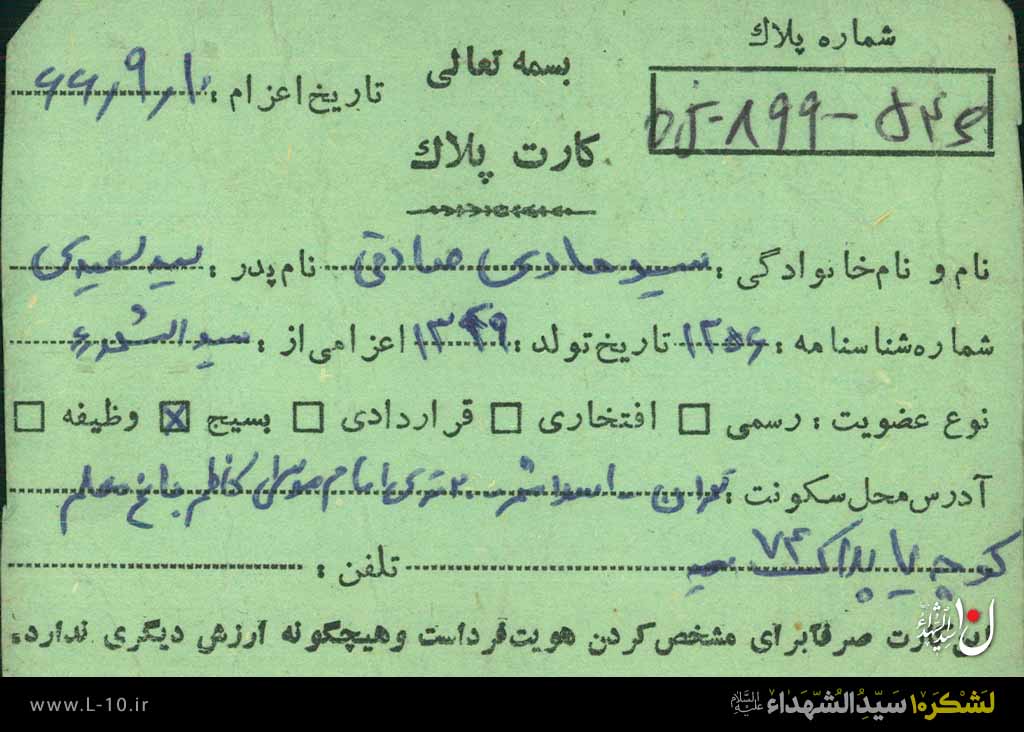 شماره پلاك
بسمه تعالی
تاریخ اعزام : ۶۶٫۹٫۱۰
کارت پلاك
نام و نام خانوادگی : سید هادی صادقی نام پدر : سید سعیدی
شماره شناسنامه : ۱۲۵۶ تاریخ تولد : ۱۳۴۹ اعزامی از : سید الشهداء
نوع عضویت : رسمی افتخاری قراردادی بسیج وظیفه
آدرس محل سکونت : تهران - ۲۰متری امام موسی کاظم باغ معلم
کوچه پلاک ۷۴
تلفن :
کارت صرفآبرای مشخص کردن هویت فرد است و هیچگونه ارزش دیگری ندارد.
www.L-10.ir
لشکر۱۰ سیّدالشّهداء علیه‌السلام